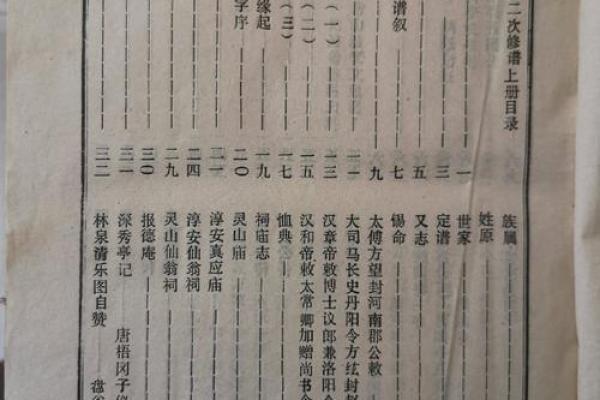 二次修谱上册目录
一
三
五
谱叙 七
九
一一
(一) 一三
(二) 一五
(三) 一七
缘起 一九
字序 二〇
二一
二四
二九
三〇
三一
三二
族属
姓原
世家
定谱
又志
锡命
太傅方望封河南郡公敕
大司马长史丹阳令方纮封
汉章帝敕博士议郎兼洛阳令
汉和帝敕太常卿加赠尚书令
恤典
祠庙志
灵山庙
淳安真应庙
淳安仙翁祠
灵山仙翁祠
报德庵
深秀亭记 唐梧冈子
林泉清乐图自赞